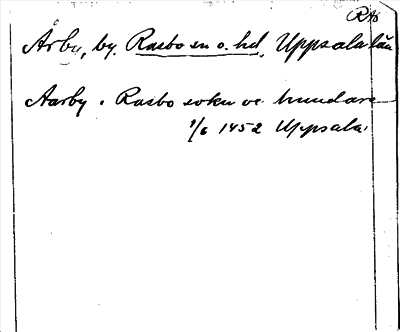 RAÖ
Årby, by. Rasbo sn o. hd, Uppsala län
Aarby i Rasbo sokn oc hundare
1/6 1452 Uppsala.